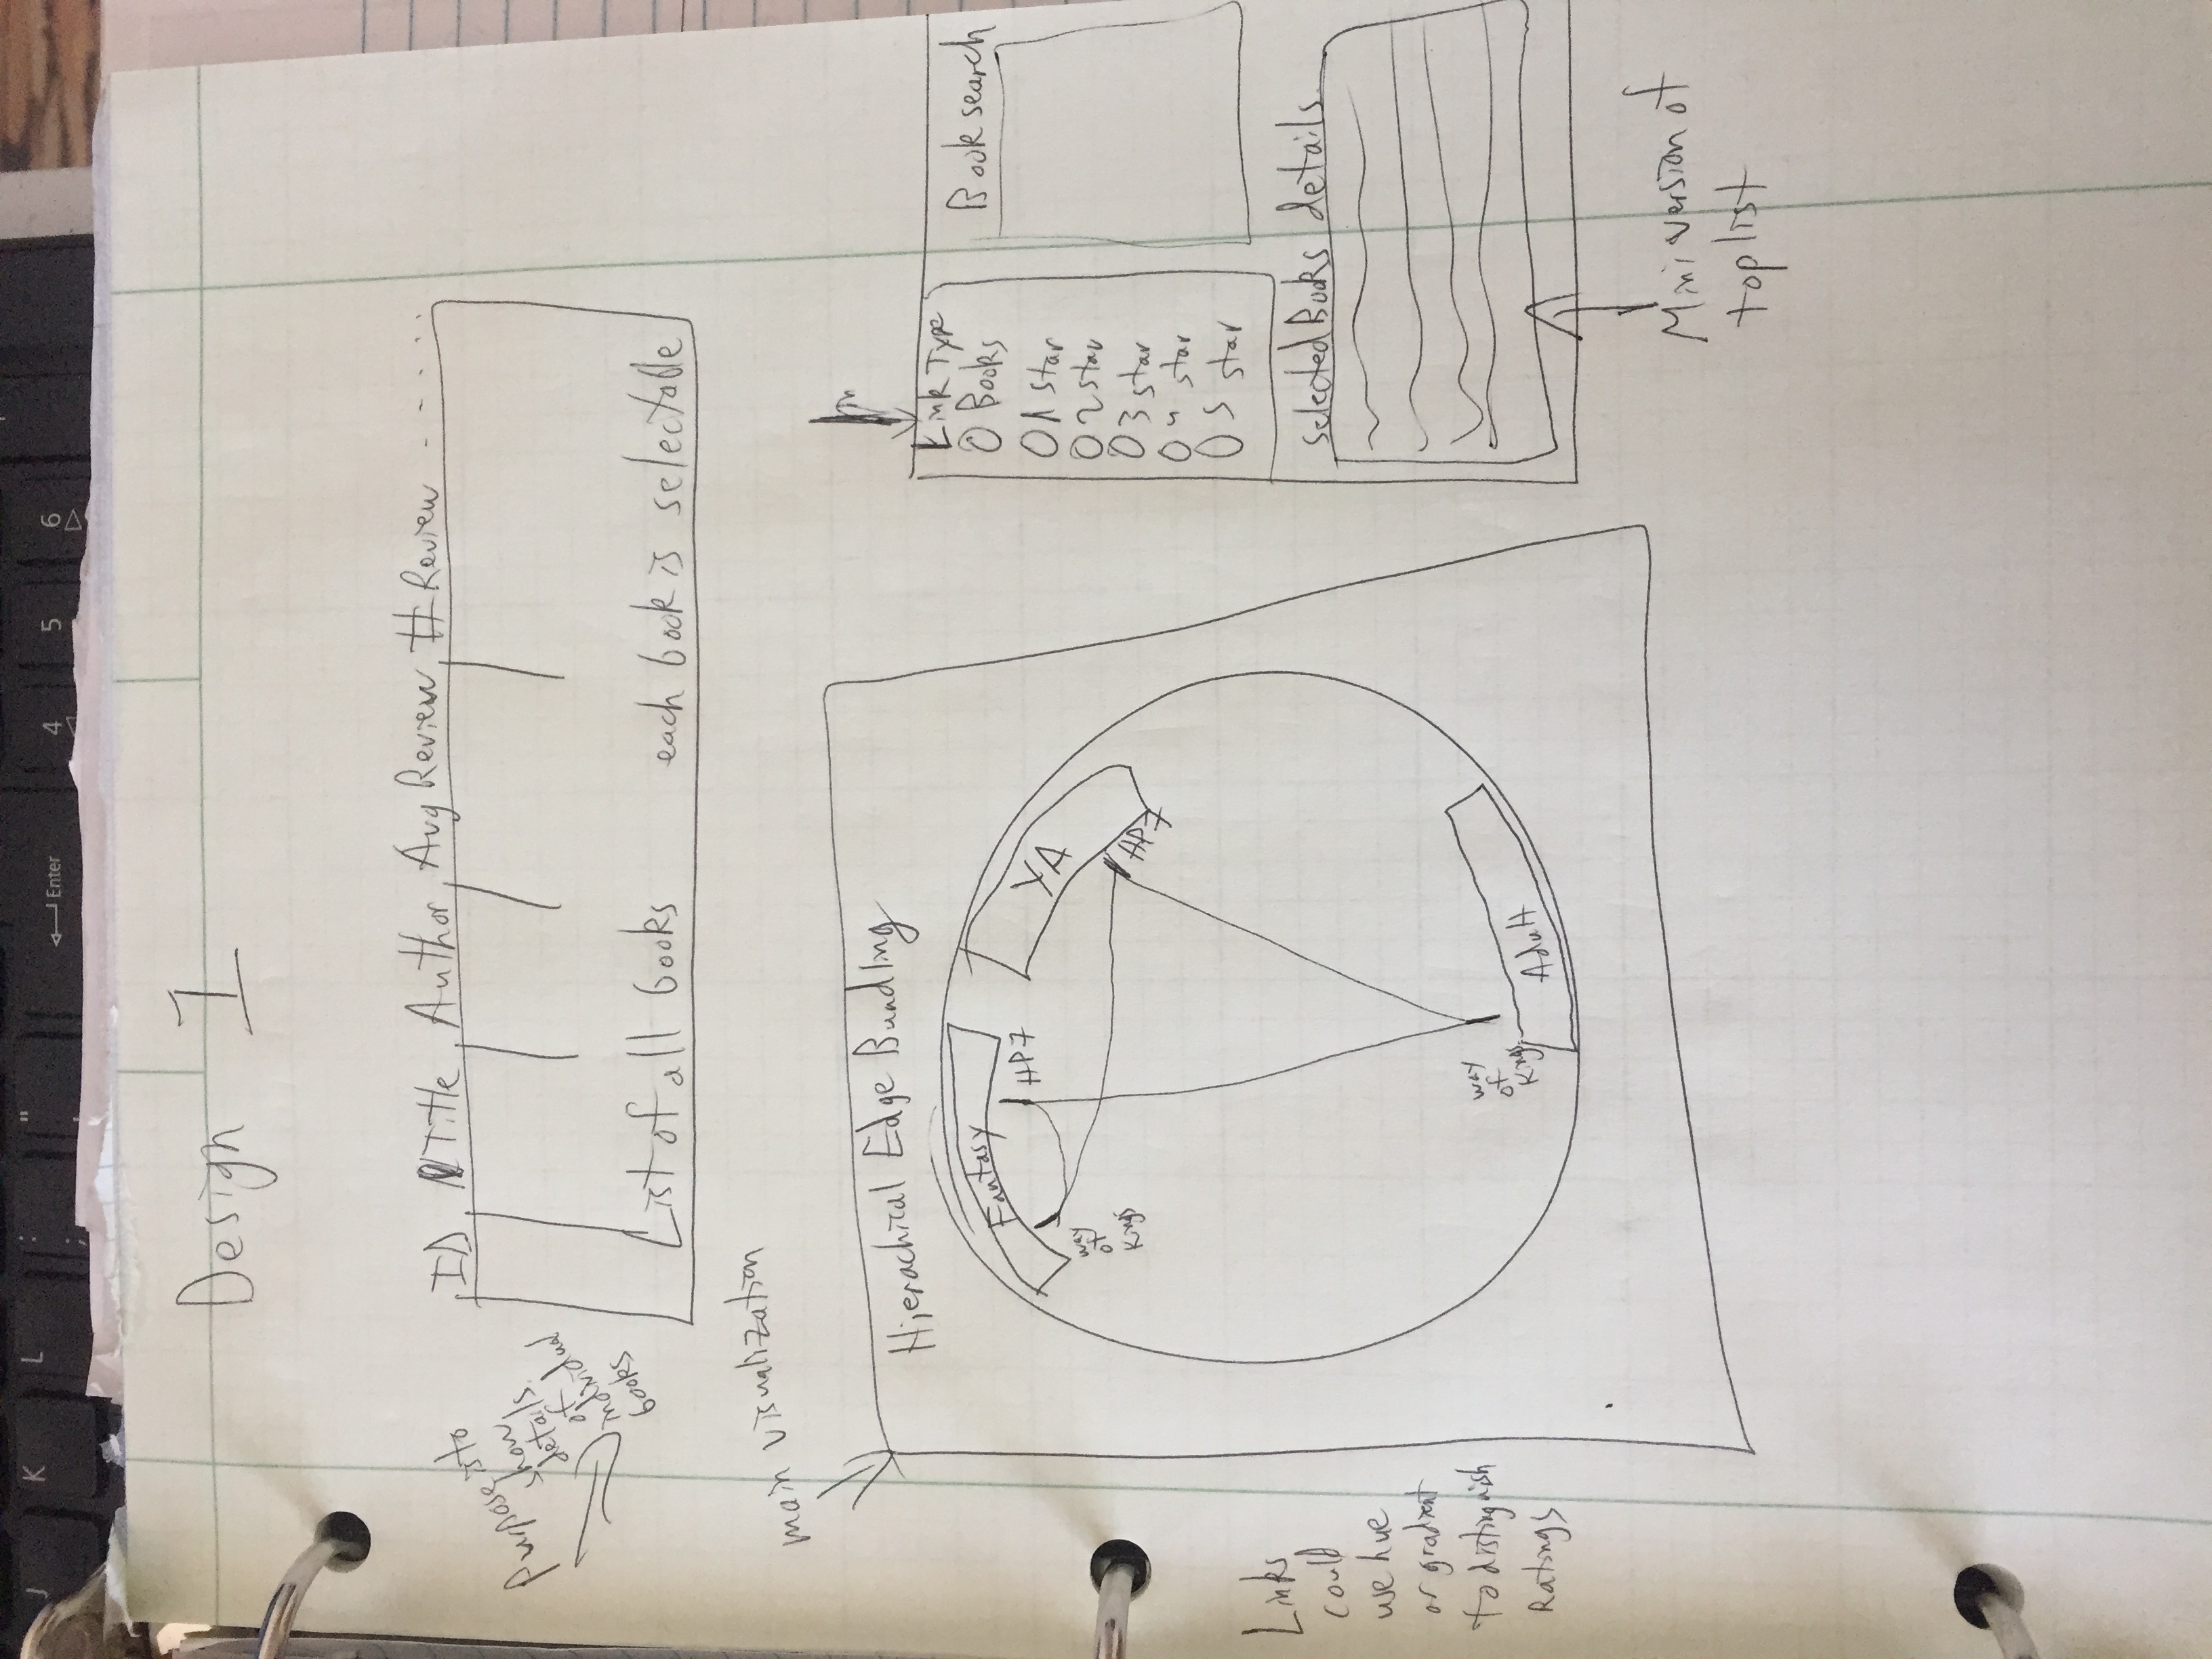 J K L : ; " ' Enter 4 5 6
Design 1
ID Title Author Avg Review # Review . . . . . .
Purpose is to
show
details
of
individual
books
List of all books each book is selectable
main visualization
Hierachical Edge Bundling
Fantasy
HP7
YA
way
of
Kings
HP7
way
of
Kings
Adult
Links
could
use hue
or gradient
to distinguish
Ratings
Link Type
O Books
O 1 star
O 2 star
O 3 star
O 4 star
O 5 star
Book search
selected Books details
Mini version of
top list